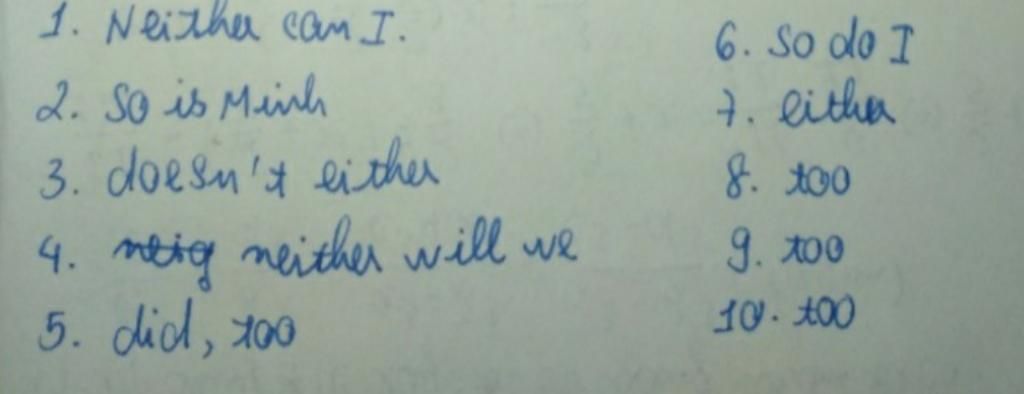 1. Neither can I.
2. So is Minh
3. doesn't either
4. neig neither will we
5. did, too
6. so do I
7. either
8. too
9. too
10. too